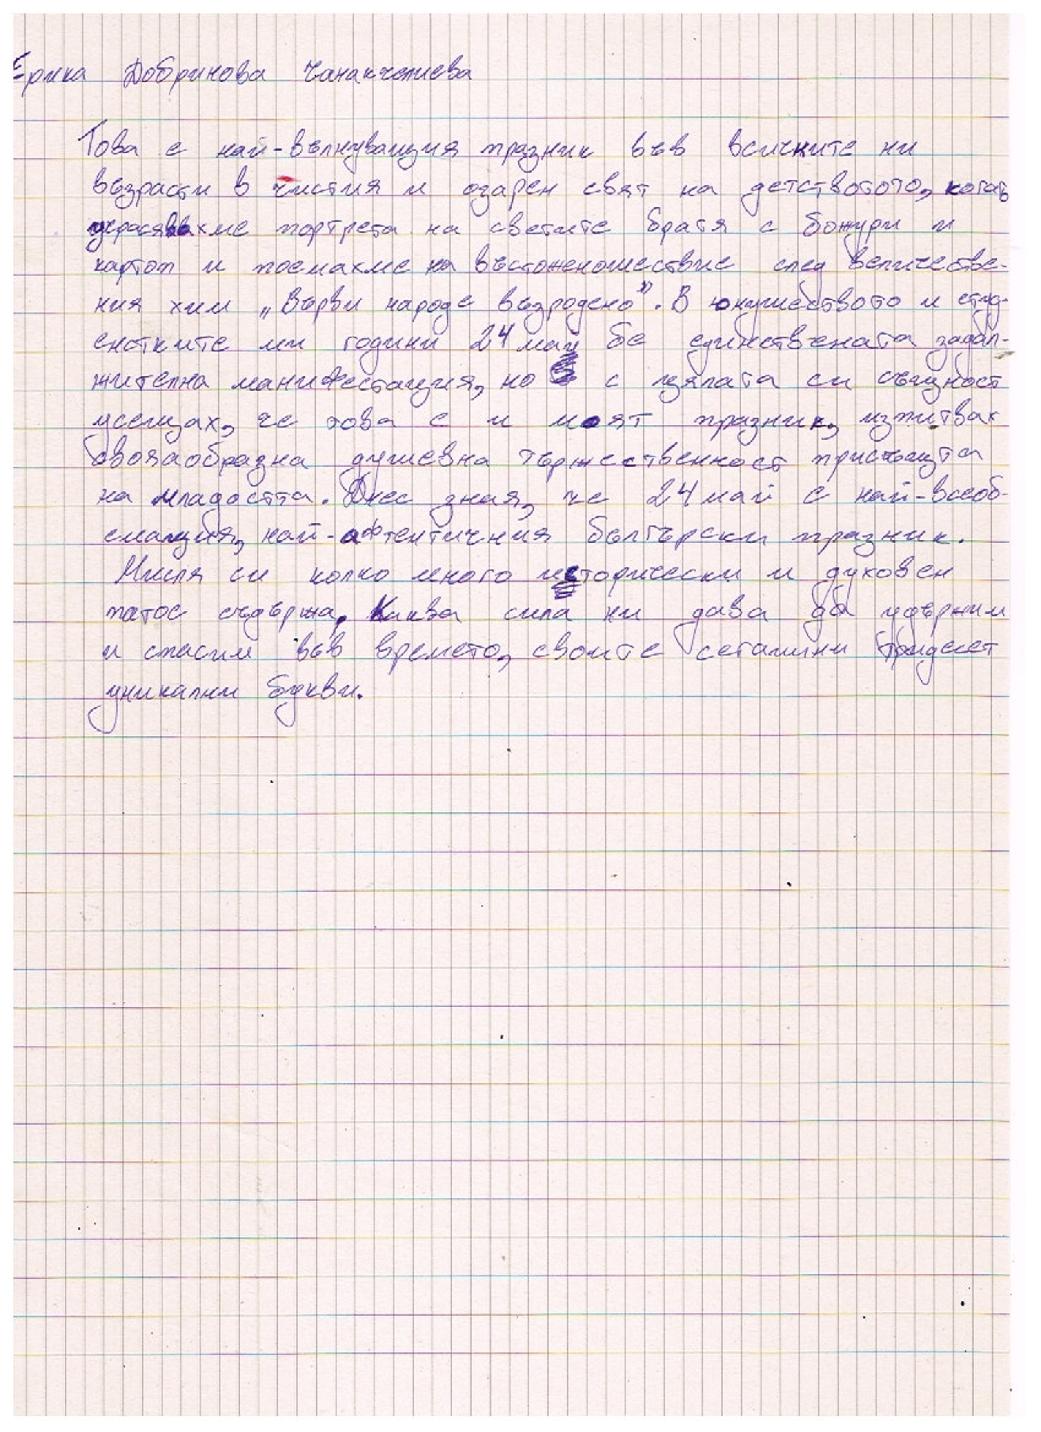 Ерика Добринова Чанакчиева
Това е най-вълнуващия празник във всичките ни
възрасти в чистия и озарен свят на детството, когато
украсявахме портрета на светите братя с божури и
картоп и поемахме на възтоженошествие след величестве-
ния хим „Върви народе възродено". В юнушеството и студ-
енстките ми години 24 май бе единствената задал-
жителна манифестация, но с цялата си същност
усещах, че това е и моят празник, изпитвах
своязаобразна душевна тържественност присъща
на младостта. Днес зная, че 24 май е най-всеоб-
емащия, най-афтентичния български празник.
Мисля си колко много исторически и духовен
патос съдържа, каква сила ни дава да удържим
и спасим във времето, своите сегашни тридесет
уникални букви.